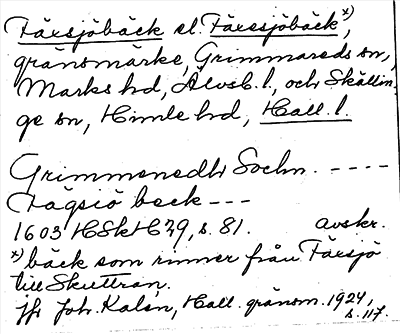 Färsjöbäck el. Färesjöbäck x),
gränsmärke, Grimmareds sn,
Marks hd, Älvsb. l., och Skällin-
ge sn, Himle hd, Hall. l.
Grimmenedh Sochn. ----
Fägsiö beck ---
1603 HSkH 29, s. 81. avskr.
x) bäck som rinner från Färsjö
till Skuttran,
jfr Joh. Kalén, Hall. gränsm. 1924,
s. 117.